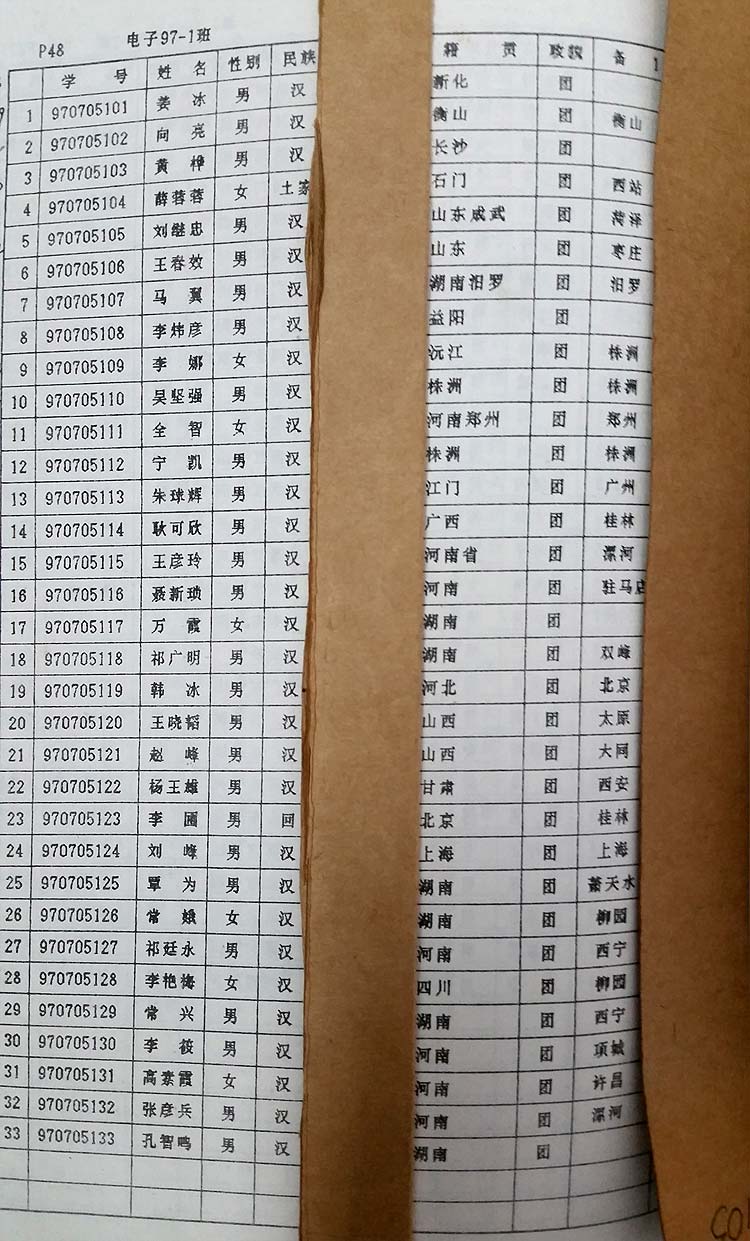 P48 电子97-1班
学 号 姓 名 性别 民族 籍 贯 政貌 备
1 970705101 姜 冰 男 汉 新化 团
2 970705102 向 亮 男 汉 衡山 团 衡山
3 970705103 黄 桦 男 汉 长沙 团
4 970705104 薛蓉蓉 女 土家 石门 团 西站
5 970705105 刘继忠 男 汉 山东成武 团 菏泽
6 970705106 王春效 男 汉 山东 团 枣庄
7 970705107 马 翼 男 汉 湖南汨罗 团 汨罗
8 970705108 李炜彦 男 汉 益阳 团
9 970705109 李 娜 女 汉 沅江 团 株洲
10 970705110 吴坚强 男 汉 株洲 团 株洲
11 970705111 全 智 女 汉 河南郑州 团 郑州
12 970705112 宁 凯 男 汉 株洲 团 株洲
13 970705113 朱球辉 男 汉 江门 团 广州
14 970705114 耿可欣 男 汉 广西 团 桂林
15 970705115 王彦玲 男 汉 河南省 团 漯河
16 970705116 聂新琐 男 汉 河南 团 驻马店
17 970705117 万 霞 女 汉 湖南 团
18 970705118 祁广明 男 汉 湖南 团 双峰
19 970705119 韩 冰 男 汉 河北 团 北京
20 970705120 王晓韬 男 汉 山西 团 太原
21 970705121 赵 峰 男 汉 山西 团 大同
22 970705122 杨王雄 男 汉 甘肃 团 西安
23 970705123 李 圃 男 回 北京 团 桂林
24 970705124 刘 峰 男 汉 上海 团 上海
25 970705125 覃 为 男 汉 湖南 团 天水
26 970705126 常 娥 女 汉 湖南 团 柳园
27 970705127 祁廷永 男 汉 河南 团 西宁
28 970705128 李艳梅 女 汉 四川 团 柳园
29 970705129 常 兴 男 汉 湖南 团 西宁
30 970705130 李 筱 男 汉 河南 团 项城
31 970705131 高素霞 女 汉 河南 团 许昌
32 970705132 张彦兵 男 汉 河南 团 漯河
33 970705133 孔智鸣 男 汉 湖南 团